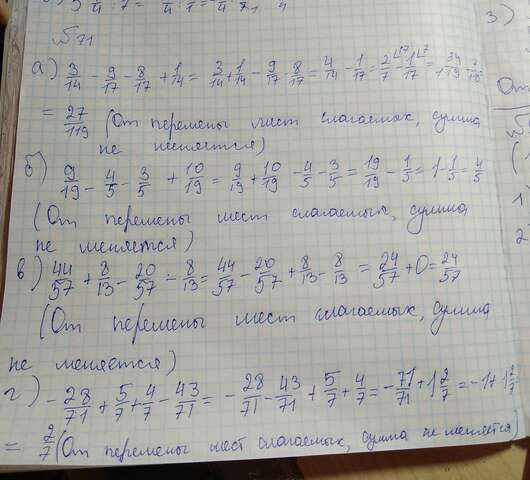 №71
а) 3/14 - 9/17 - 8/17 + 1/14 = 3/14 + 1/14 - 9/17 - 8/17 = 4/14 - 1/17 = 2/7 - 1/17 = 34/119 - 7/119
= 27/119 (От перемены мест слагаемых, сумма
не меняется)
б) 9/19 - 4/5 - 3/5 + 10/19 = 9/19 + 10/19 - 4/5 - 3/5 = 19/19 - 1/5 = 1 - 1/5 = 4/5
(От перемены мест слагаемых, сумма
не меняется)
в) 44/57 + 8/13 - 20/57 - 8/13 = 44/57 - 20/57 + 8/13 - 8/13 = 24/57 + 0 = 24/57
(От перемены мест слагаемых, сумма
не меняется)
г) - 28/71 + 5/7 + 4/7 - 43/71 = - 28/71 - 43/71 + 5/7 + 4/7 = - 71/71 + 1 2/7 = -1 + 1 2/7
= 2/7 (От перемены мест слагаемых, сумма не меняется)
3)
От